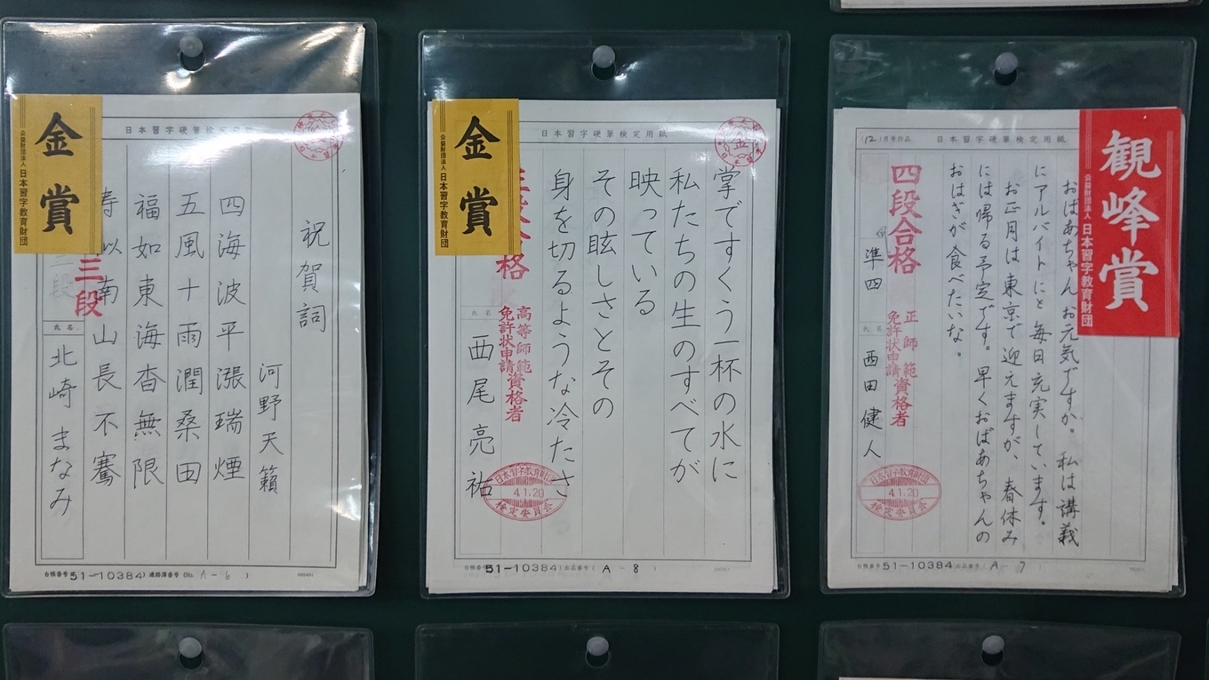 金賞
公益財団法人 日本習字教育財団
日本習字硬筆検定
祝賀詞
河野天籟
四海波平漲瑞煙
五風十雨潤桑田
福如東海杳無限
寿似南山長不騫
三段
氏名
北崎まなみ
台帳番号 51-10384
A-6
金賞
公益財団法人 日本習字教育財団
日本習字硬筆検定用紙
掌ですくう一杯の水に
私たちの生のすべてが
映っている
その眩しさとその
身を切るような冷たさ
格
高等師範
免許状申請資格者
氏名
西尾亮祐
日本習字教育財団
4.1.20
検定委員会
台帳番号 51-10384
A-8
観峰賞
公益財団法人 日本習字教育財団
12月号作品 日本習字硬筆検定用紙
おばあちゃんお元気ですか。私は講義
にアルバイトにと毎日充実しています。
お正月は東京で迎えますが、春休み
には帰る予定です。早くおばあちゃんの
おはぎが食べたいな。
四段合格
正師範
免許状申請資格者
準四
氏名
西田健人
日本習字教育財団
4.1.20
検定委員会
台帳番号 51-10384
A-7